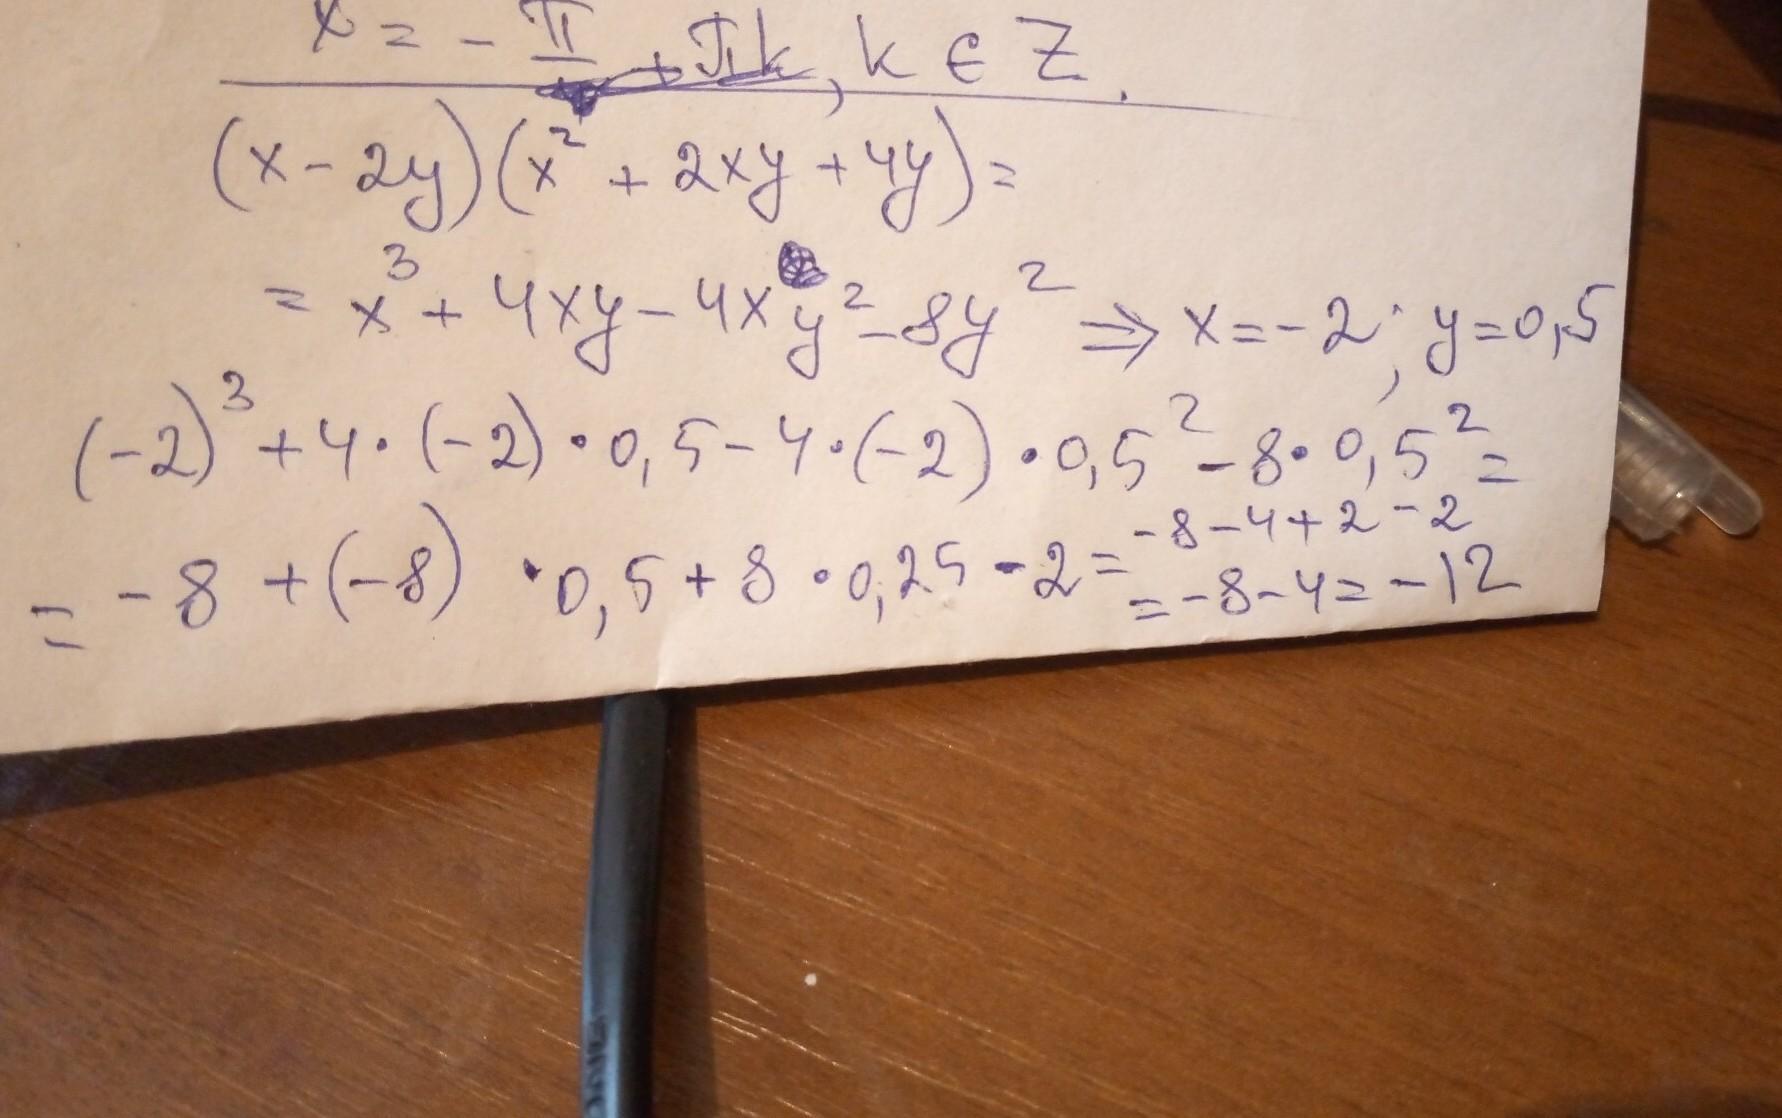 x = - π/ + πk, k ∈ Z.
(x - 2y)(x² + 2xy + 4y) =
= x³ + 4xy - 4xy² - 8y² ⇒ x = -2; y = 0,5
(-2)³ + 4·(-2)·0,5 - 4·(-2)·0,5² - 8·0,5² =
= -8 + (-8)·0,5 + 8·0,25 - 2 = -8 - 4 + 2 - 2
= -8 - 4 = -12